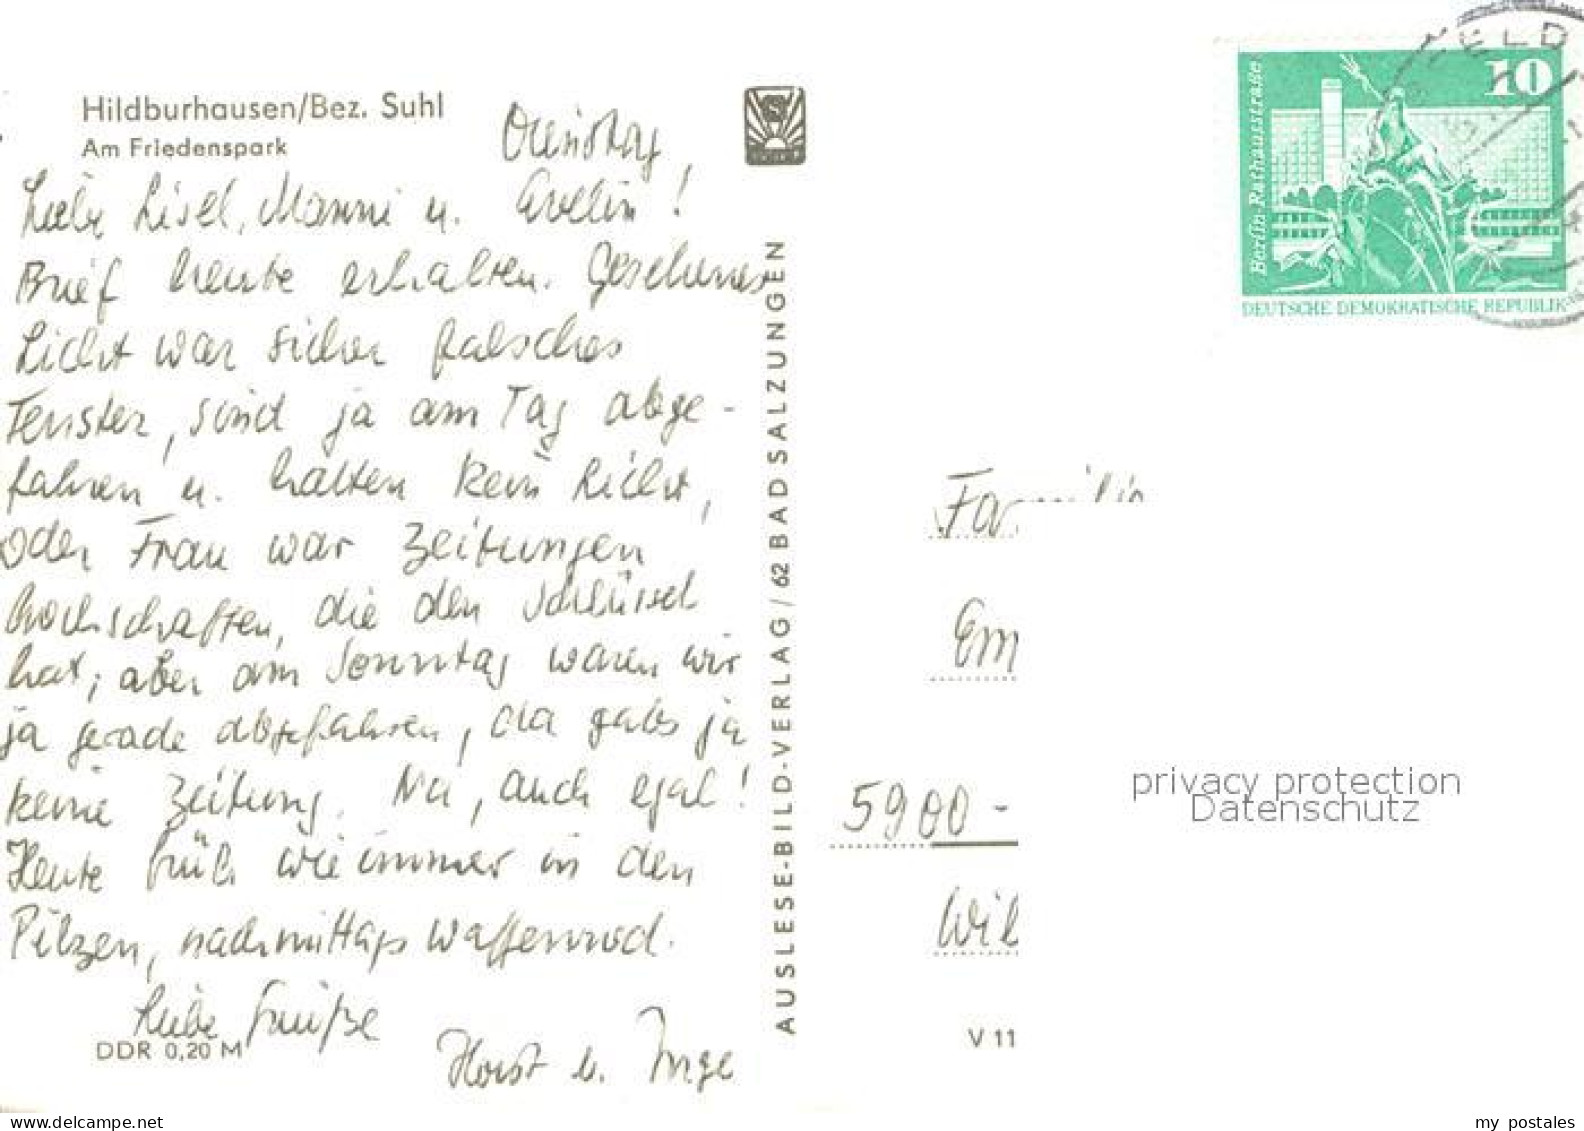 Hildburhausen/Bez. Suhl
Am Friedenspark
Dienstag,
Liebe Lisel, Manni u. Evelin!
Brief heute erhalten. Gesehenes
Licht war sicher falsches
Fenster, sind ja am Tag abge-
fahren u. hatten kein Licht,
oder Frau war Zeitungen
hochschaffen, die den Schlüssel
hat; aber am Sonntag waren wir
ja gerade abgefahren, da gabs ja
keine Zeitung. Na, auch egal!
Heute früh wie immer in den
Pilzen, nachmittags Waffenrod.
Liebe Grüße
Horst u. Inge
DDR 0,20 M
AUSLESE-BILD-VERLAG/62 BAD SALZUNGEN
10
Berlin Rathausstraße
DEUTSCHE DEMOKRATISCHE REPUBLIK
Familie
Em
5900 -
Wil
V 11
privacy protection
Datenschutz
www.delcampe.net
my postales